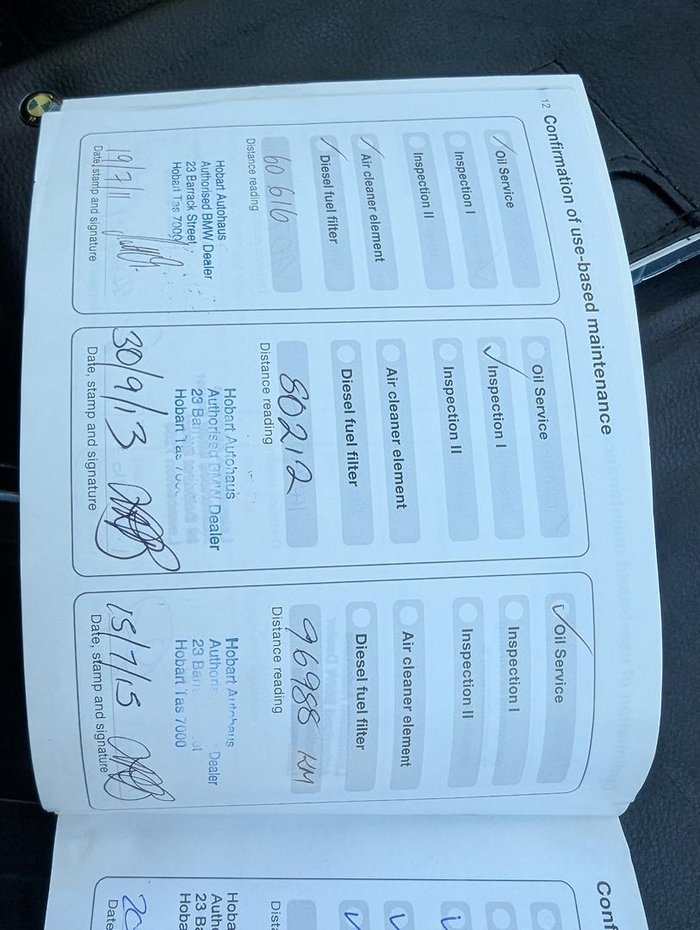 12 Confirmation of use-based maintenance
Oil Service
Inspection I
Inspection II
Air cleaner element
Diesel fuel filter
60 616
Distance reading
Hobart Autohaus
Authorised BMW Dealer
23 Barrack Street
Hobart Tas 7000
19/7/11
Date, stamp and signature
Oil Service
Inspection I
Inspection II
Air cleaner element
Diesel fuel filter
80212
Distance reading
Hobart Autohaus
Authorised BMW Dealer
23 Bar
Hobart Tas 700
30/9/13
Date, stamp and signature
Oil Service
Inspection I
Inspection II
Air cleaner element
Diesel fuel filter
96988 KM
Distance reading
Hobart Autohaus
Authori Dealer
23 Barr et
Hobart Tas 7000
15/7/15
Date, stamp and signature
Conf
Dista
Hoba
Autho
23 Ba
Hoba
20
Date